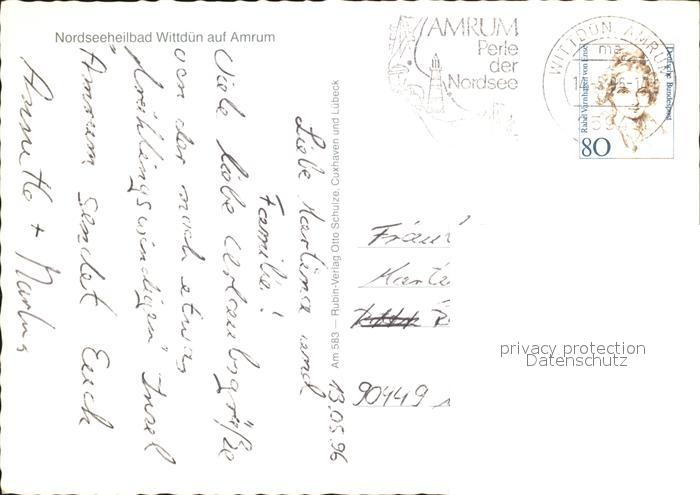 Nordseeheilbad Wittdün auf Amrum
AMRUM
Perle
der
Nordsee
WITTDÜN, AMRUM
Rahel Varnhagen von Ense
Deutsche Bundespost
80
13.05.96
Liebe Martina und
Familie!
Viele liebe Urlaubsgrüße
von der noch etwas
frühlingswindigen Insel
Amrum sendet Euch
Annette + Markus
Am 583 — Rubin-Verlag Otto Schulze, Cuxhaven und Lübeck
90449
privacy protection
Datenschutz